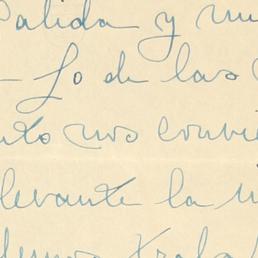 salida y mu
- Lo de las
nto nos convie
levante la